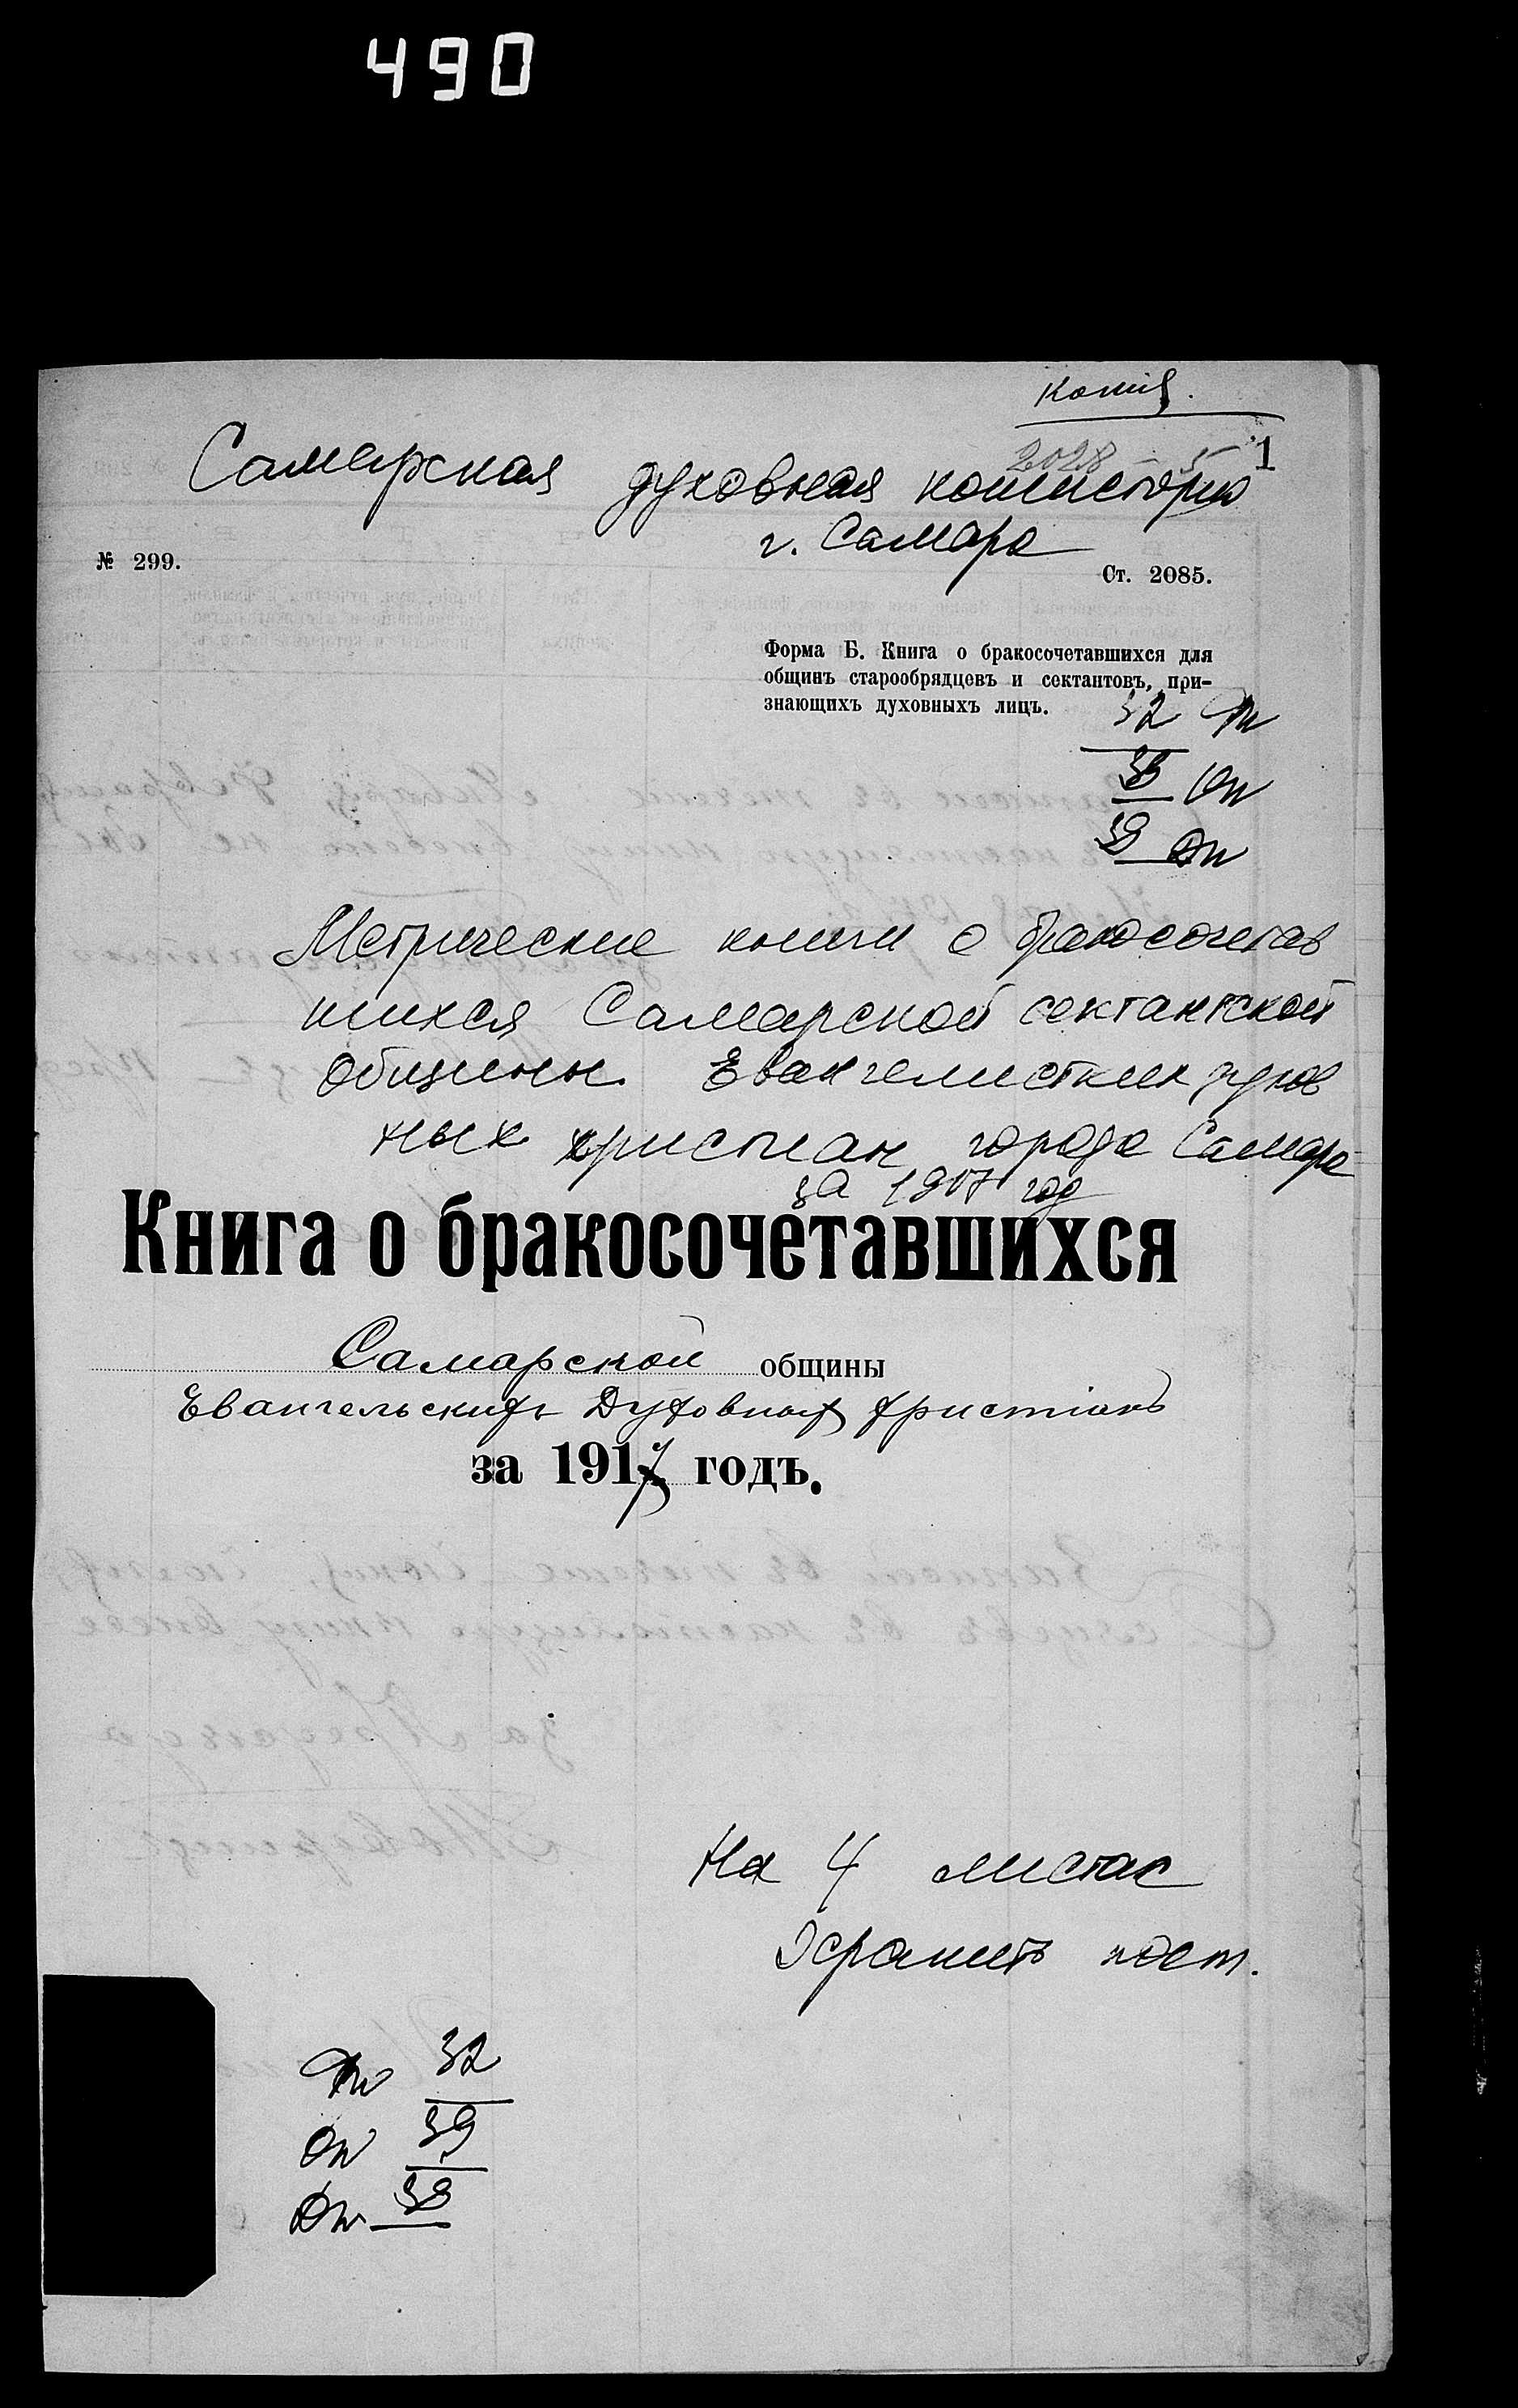 490
копия.
2028 1
Самарская духовная консистория
г. Самара
№ 299.
Ст. 2085.
Форма Б. Книга о бракосочетавшихся для
общинъ старообрядцевъ и сектантовъ, при-
знающихъ духовныхъ лицъ.
32
39 Оп
38
Метрические книги о бракосочетав
шихся Самарской сектантской
общины Евангелистких духов
ных христиан города Самара
за 1917 год
Книга о бракосочетавшихся
Самарской общины
Евангельскихъ Духовныхъ Христіанъ
за 1917 годъ.
На 4 листах
Хранить пост.
32
Оп 39
38